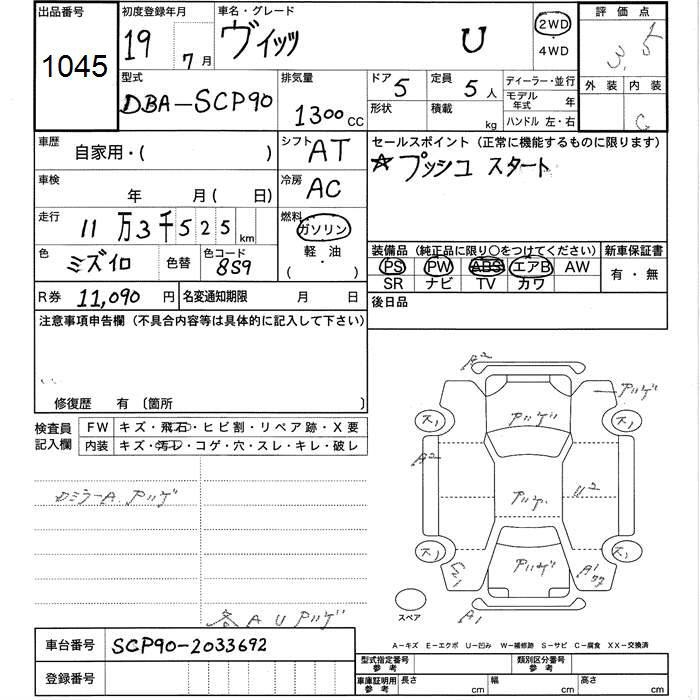 出品番号
1045
初度登録年月
19 7月
車名・グレード
ヴィッツ U
2WD
・
4WD
評価点
3.5
外装 内装
C
型式
DBA-SCP90
排気量
1300 CC
ドア 5
形状
定員 5人
積載 kg
ディーラー・並行
モデル年式 年
ハンドル 左・右
車歴
自家用・( )
シフト AT
セールスポイント (正常に機能するものに限ります)
☆プッシュ スタート
車検
年 月( 日)
冷房 AC
走行
11万3千525 km
燃料
ガソリン
軽・油
( )
色
ミズイロ
色替
色コード
8S9
装備品 (純正品に限り○をつけてください)
PS PW ABS エアB AW
SR ナビ TV カワ
新車保証書
有・無
R券 11,090 円
名変通知期限 月 日
後日品
注意事項申告欄 (不具合内容等は具体的に記入して下さい)
修復歴 有 〔箇所
検査員
記入欄
FW キズ・飛石・ヒビ割・リペア跡・X要
内装 キズ・汚レ・コゲ・穴・スレ・キレ・破レ
ロミラーA.アリゲ
各AUアリゲ
A2
アリゲ
アリゲ
ス1
ス1
A2
アリゲ
U2
ス1
ス1
アリゲ
A1
A1
スペア
A-キズ E-エクボ U-凹み W-補修跡 S-サビ C-腐食 XX-交換済
車台番号 SCP90-2033692
登録番号
型式指定番号
参考
類別区分番号
参考
車庫証明用
参考
長さ cm
幅 cm
高さ cm